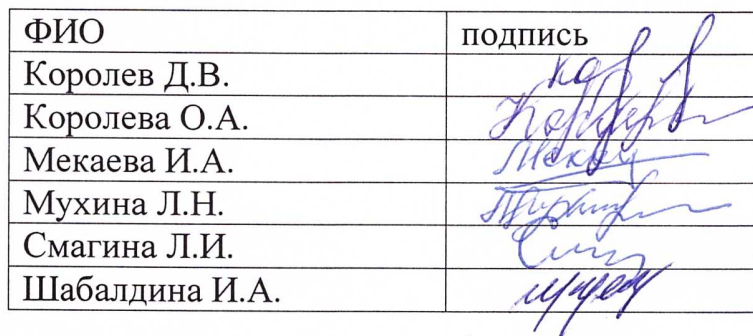 ФИО подпись
Королев Д.В.
Королева О.А.
Мекаева И.А.
Мухина Л.Н.
Смагина Л.И.
Шабалдина И.А.